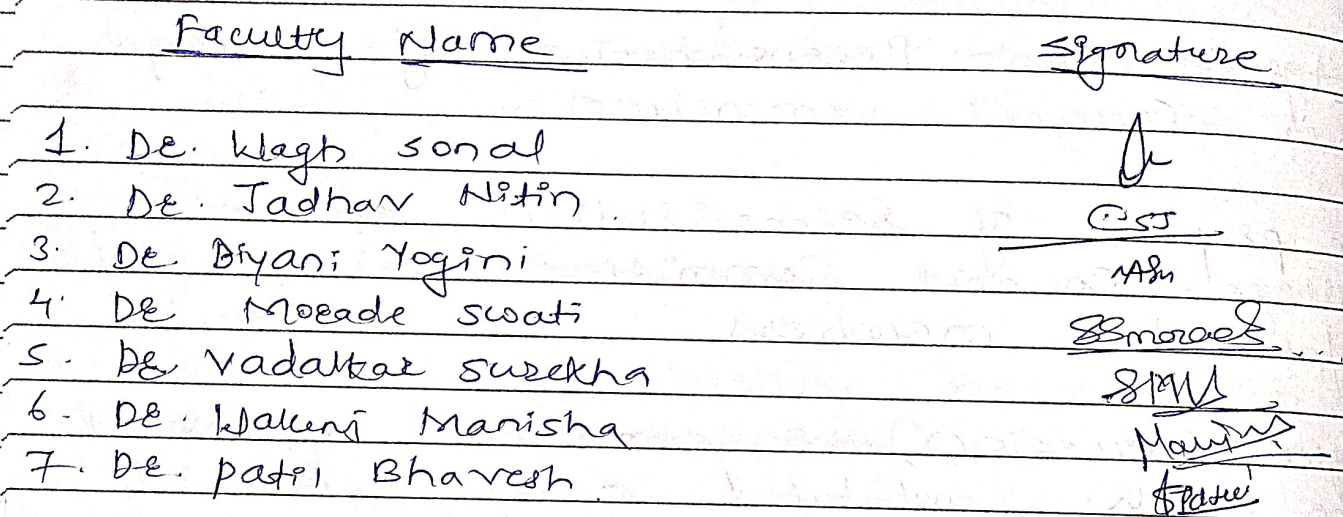 Faculty Name Signature
1. Dr. Wagh Sonal
2. Dr. Jadhav Nitin
3. Dr Biyani Yogini
4. Dr Morade Swati SSmorade
5. Dr Vadalkar Surekha
6. Dr. Manisha
7. Dr. patil Bhavesh